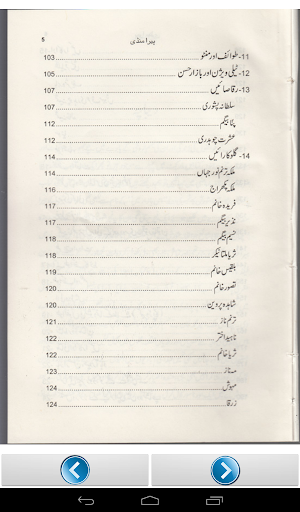 5 ہیرا منڈی
11- طوائف اور منٹو 103
12- ٹیلی ویژن اور بازار حسن 105
13- رقاصائیں
سلطانہ پشوری
پنا بیگم 112
عشرت چوہدری 112
14- گلوکارائیں 114
ملکہ ترنم نور جہاں 114
ملکہ پکھراج 116
فریدہ خانم 117
نذیر بیگم 117
نسیم بیگم 118
ثریا ملتانیکر 118
بلقیس خانم 119
تصور خانم 120
شاہدہ پروین 120
ترنم ناز 121
ناہید اختر 122
ثریا خانم 122
مہ ناز 123
مہوش 124
زرقا 124